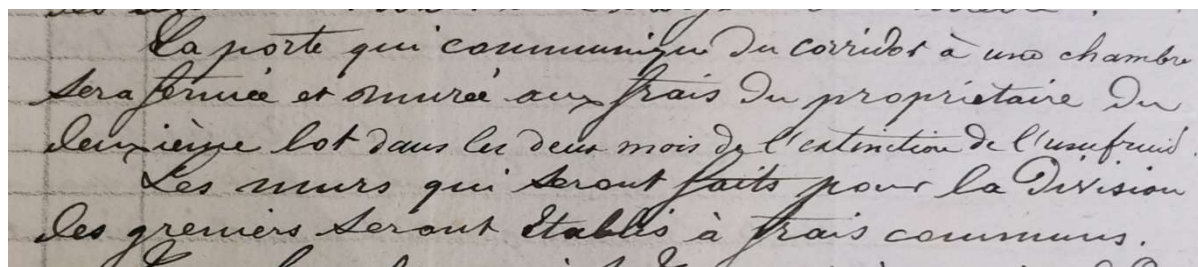 La porte qui communique du corridor à une chambre
sera fermée et murée aux frais du propriétaire du
deuxième lot dans les deux mois de l'extinction de l'usufruit.
Les murs qui seront faits pour la Division
des greniers seront établis à frais communs.